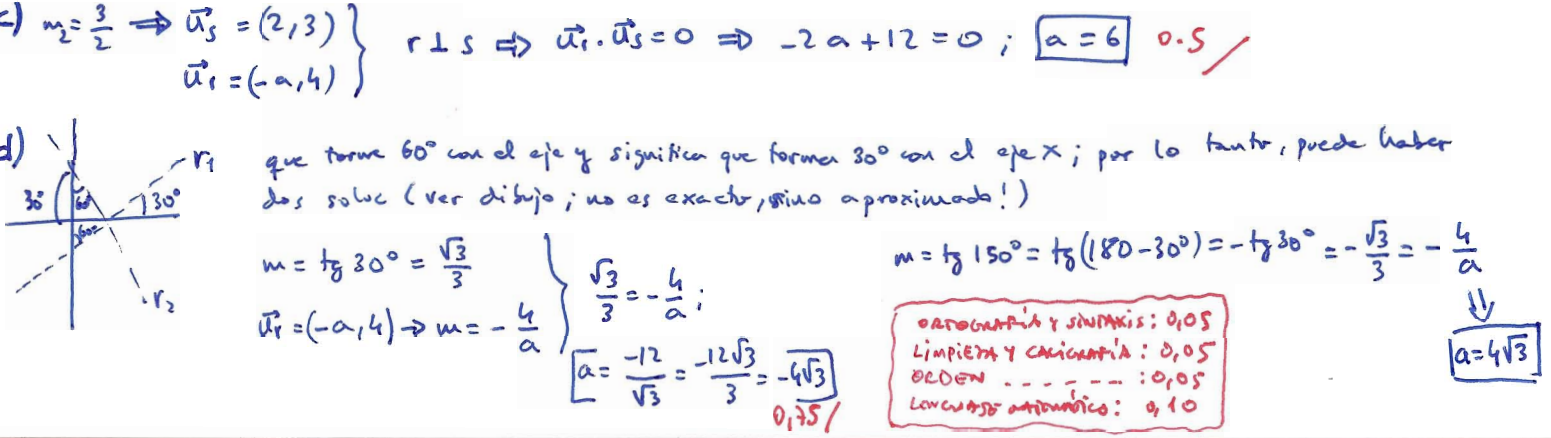 c) m₂ = 3/2 ⇒ u⃗s = (2,3)
u⃗r = (-a,4) } r ⊥ s ⇒ u⃗r · u⃗s = 0 ⇒ -2a + 12 = 0 ; a = 6 0.5
d) que forme 60° con el eje y significa que forma 30° con el eje x ; por lo tanto, puede haber
dos soluc (ver dibujo ; no es exacto, sino aproximado!)
r₁
30°
60°
30°
60°
r₂
m = tg 30° = √3/3
u⃗r = (-a,4) → m = - 4/a
√3/3 = - 4/a ;
a = -12/√3 = -12√3/3 = -4√3
0,75
m = tg 150° = tg (180-30°) = - tg 30° = - √3/3 = - 4/a
⇓
a = 4√3
ORTOGRAFÍA Y SINTAXIS : 0,05
LIMPIEZA Y CALIGRAFÍA : 0,05
ORDEN - - - - - - : 0,05
LENGUAJE MATEMÁTICO : 0,10